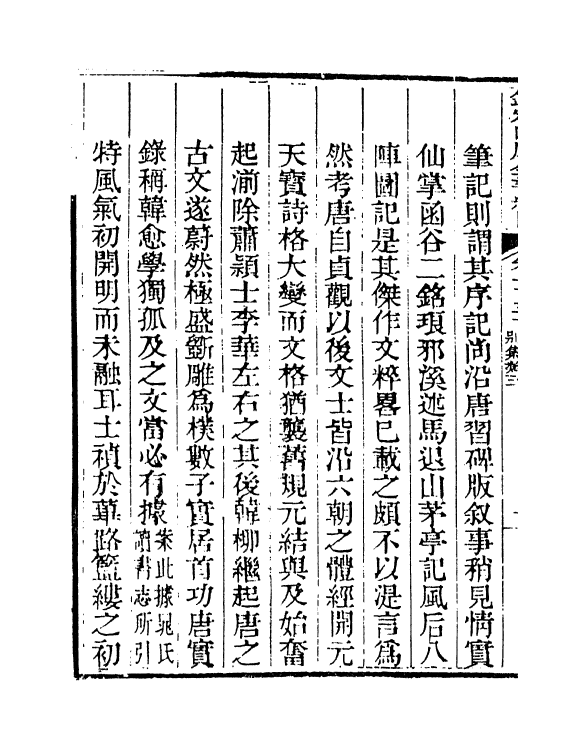 筆記則謂其序記尚沿唐習碑版叙事稍見情實
仙掌函谷二銘瑯邪溪述馬退山茅亭記風后八
陣圖記是其傑作文粹畧已載之頗不以湜言爲
然考唐自貞觀以後文士皆沿六朝之體經開元
天寶詩格大變而文格猶襲舊規元結與及始奮
起湔除蕭頴士李華左右之其後韓柳繼起唐之
古文遂蔚然極盛斲雕爲樸數子實居首功唐實
錄稱韓愈學獨孤及之文當必有據案此據晁氏
讀書志所引
特風氣初開明而未融耳士禎於蓽路籃縷之初
別集類三